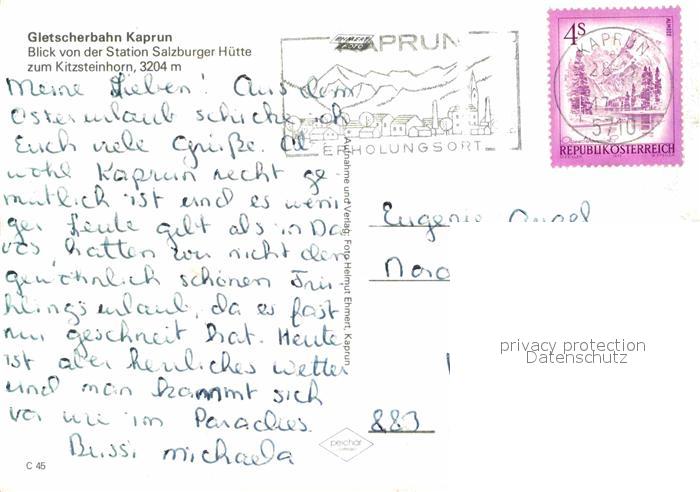 Gletscherbahn Kaprun
Blick von der Station Salzburger Hütte
zum Kitzsteinhorn, 3204 m
Meine Lieben! Aus dem
Osterurlaub schicke ich
Euch viele Grüße. Ob
wohl Kaprun recht ge-
mütlich ist und es weni
ger Leute gibt als in Da
vos, hatten wir nicht den
gewöhnlich schönen Frü
hlingsurlaub, da es fast
nur geschneit hat. Heute
ist aber herrliches Wetter
und man kommt sich
vor wie im Paradies.
Bussi Michaela
C 45
Aufnahme und Verlag: Foto Helmut Ehmert, Kaprun
peichär
KAPRUN
ERHOLUNGSORT
4S
ALMSEE
KAPRUN
5710
REPUBLIK ÖSTERREICH
Eugenie
883
privacy protection
Datenschutz